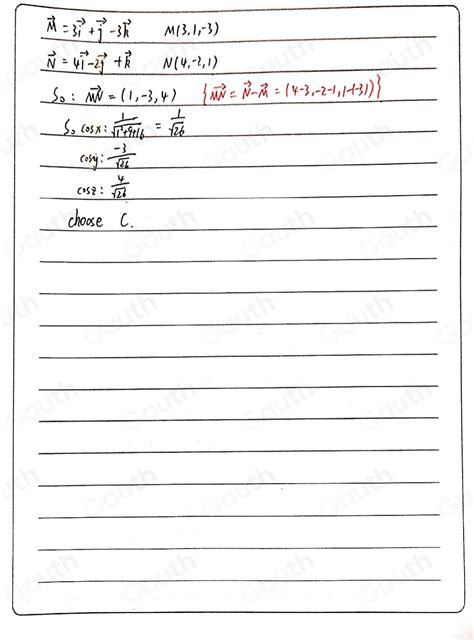 M⃗ = 3i⃗ + j⃗ - 3k⃗ M(3,1,-3)
N⃗ = 4i⃗ - 2j⃗ + k⃗ N(4,-2,1)
So: MN⃗ = (1,-3,4) {MN⃗ = N⃗ - M⃗ = (4-3,-2-1,1-(-3))}
So cosx: 1/√(1²+9+16) = 1/√26
cosy: -3/√26
cosz: 4/√26
choose C.